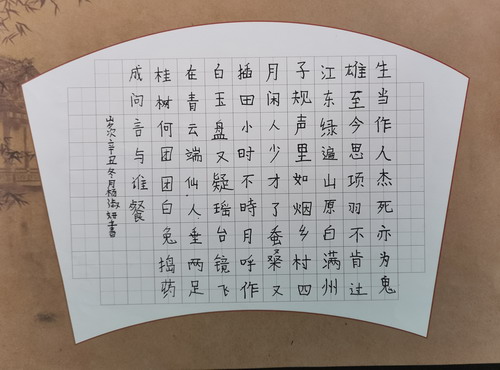 生当作人杰死亦为鬼
雄至今思项羽不肯过
江东绿遍山原白满州
子规声里如烟乡村四
月闲人少才了蚕桑又
插田小时不時月呼作
白玉盘又疑瑶台镜飞
在青云端仙人垂两足
桂树何团团白兔捣药
成问言与谁餐
岁次辛丑冬月杨淑妍書